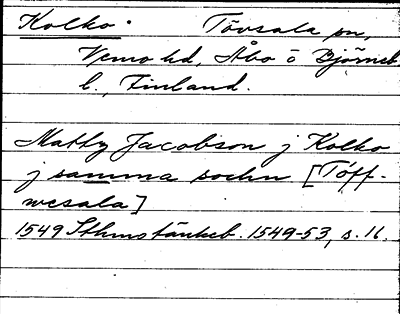 Kolko. Tövsala sn,
Vemo hd, Åbo o Björneb.
l., Finland.
Matly Jacobson j Kolko
j samma sochn [Töff-
wesala]
1549 Sthms tänkeb. 1549-53, s. 16.